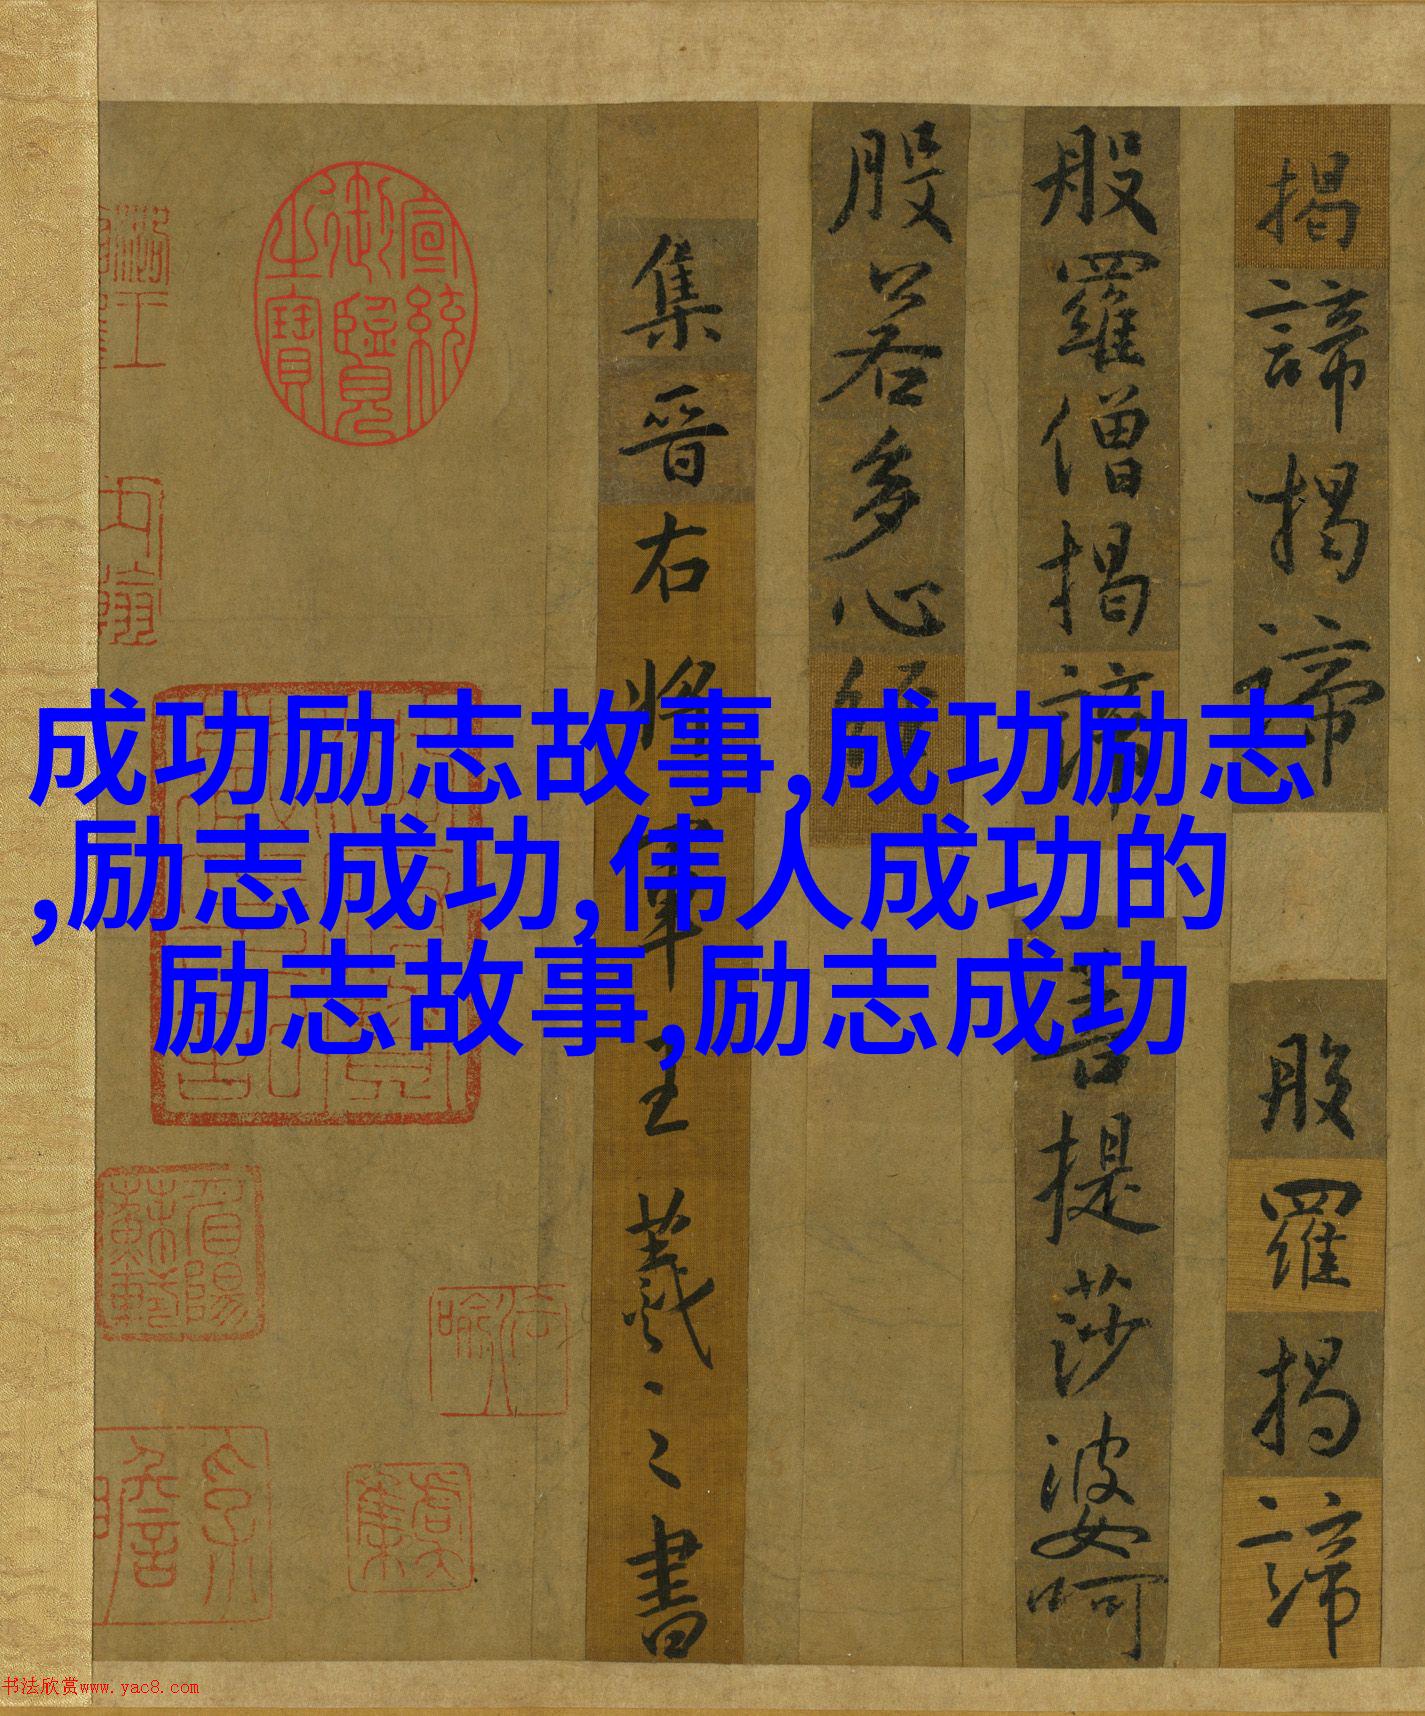 成功励志故事,成功励志
,励志成功,伟人成功的
励志故事,励志成功
揭諦揭諦般羅揭諦
般羅僧揭諦菩提莎婆呵
般若多心經
集晉右將軍王羲之書
宣統御覽之寶
书法欣赏www.yac8.com